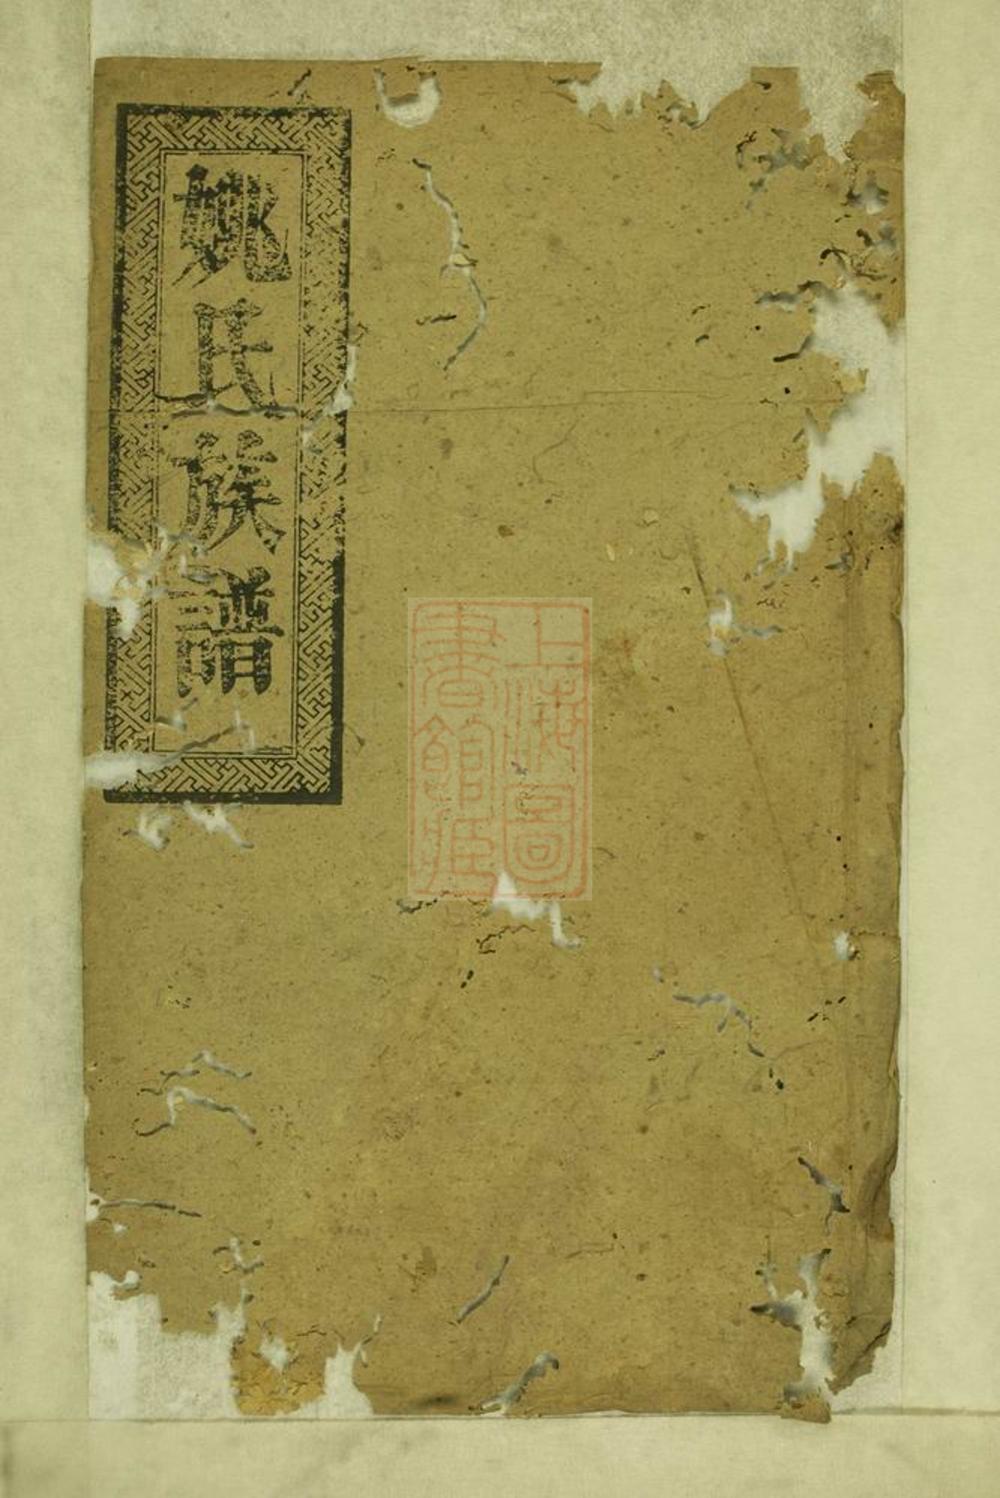 姚氏族譜
上海圖
書館藏